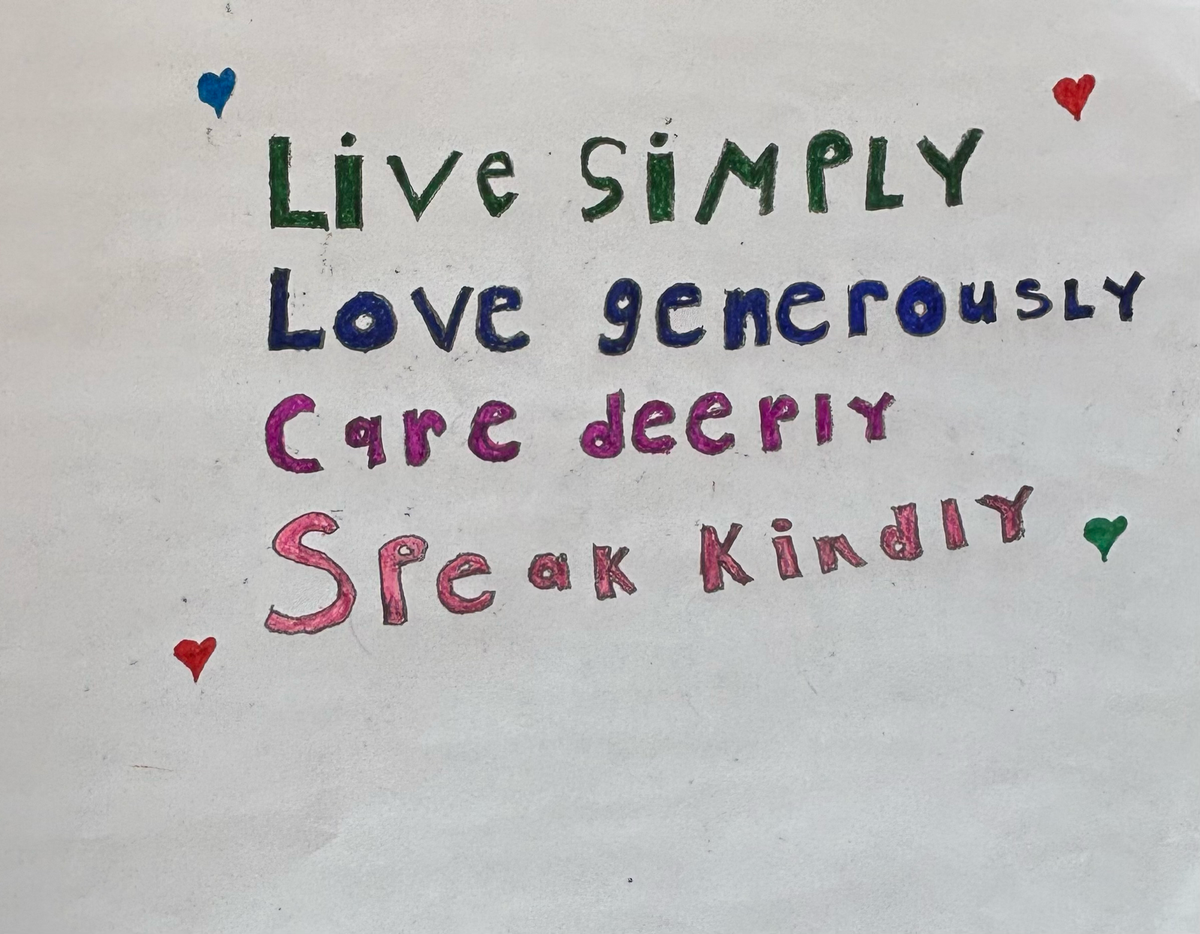 Live SiMPLY
Love generousLY
Care deeply
Speak KindlY